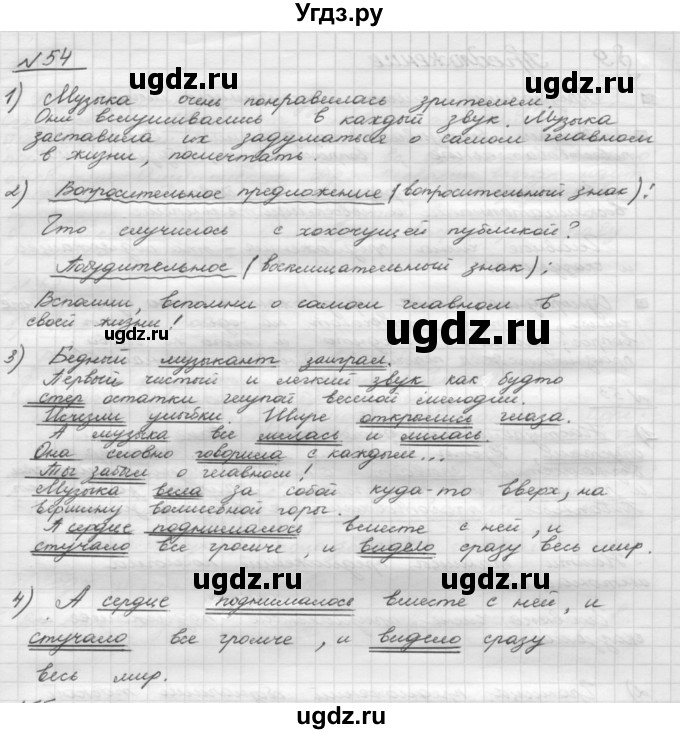 Угдз.ру
№54
ugdz.ru
ugdz.ru
1) Музыка очень понравилась зрителем.
Они вслушивались в каждый звук. Музыка
заставила их задуматься о самом главном
в жизни, помечтать.
ugdz.ru
2) Вопросительное предложение (вопросительный знак):
Что случилось с хохочущей публикой?
ugdz.ru
Побудительное (восклицательный знак):
Вспомни, вспомни о самом главном в
своей жизни!
ugdz.ru
3) Бедный музыкант заиграл.
Первый чистый и легкий звук как будто
стер остатки глупой веселой мелодии.
Исчезли улыбки. Шире открылись глаза.
А музыка все лилась и лилась.
ugdz.ru
Она словно говорила с каждым...
Ты забыл о главном!
ugdz.ru
Музыка вела за собой куда-то вверх, на
вершину волшебной горы.
А сердце поднималось вместе с ней, и
стучало все громче, и видело сразу весь мир.
ugdz.ru
ugdz.ru
4) А сердце поднималось вместе с ней, и
стучало все громче, и видело сразу
ugdz.ru
весь мир.
ugdz.ru